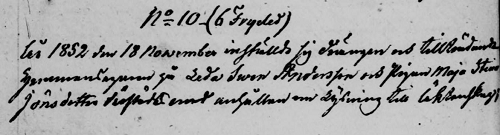 No 10 (6
År 1852 den 18 November inställde sig Drängen och tillträdande
Hemmansegaren på Leda Swen Andersson och Pigan Maja
Jönsdotter och anhöllo om Lysning till äktenskap